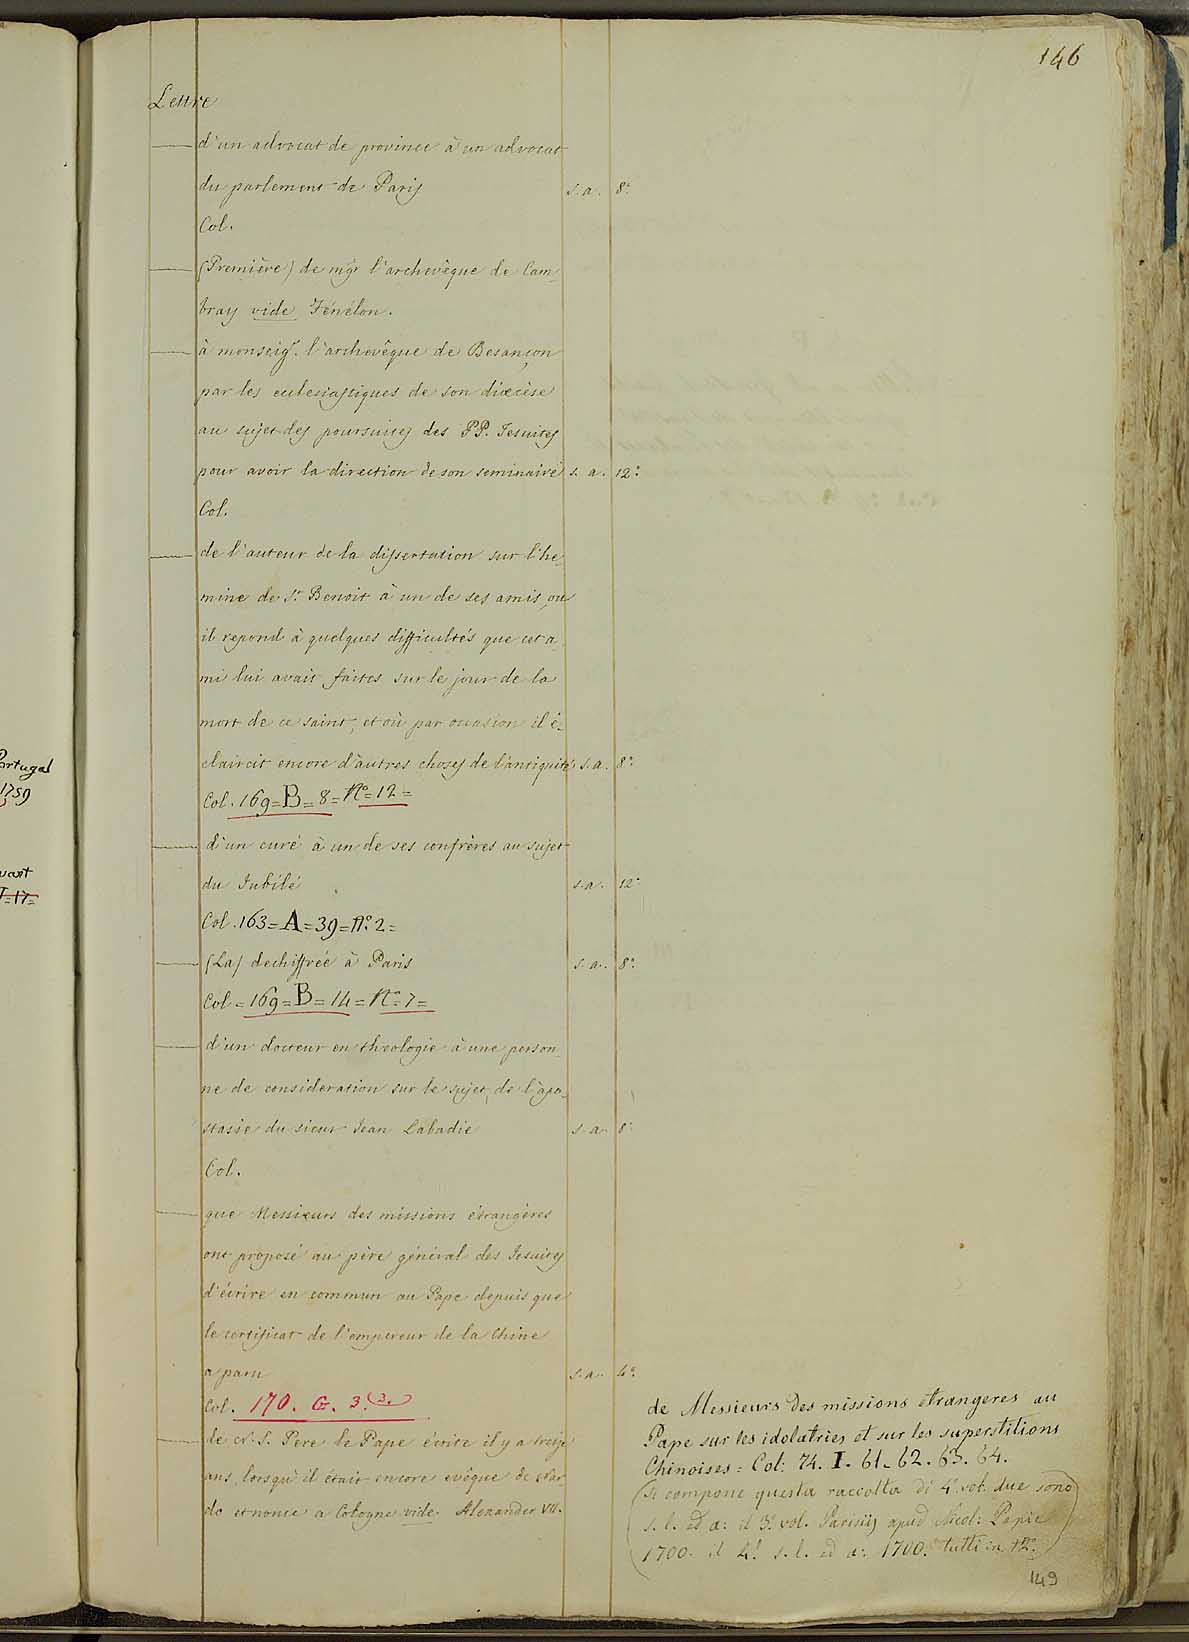 146
Lettre
— d'un advocat de province à un advocat
du parlement de Paris s. a. 8°
Col.
— (Première) de mgr l'archevêque de Cam-
bray vide Fénélon.
— à monseigr. l'archevêque de Besançon
par les eclesiastiques de son diœcèse
au sujet des poursuites des PP. Jesuites
pour avoir la direction de son seminaire s. a. 12°
Col.
— de l'auteur de la dissertation sur l'he-
mine de St. Benoit à un de ses amis, ou
il repond à quelques difficultés que cet a-
mi lui avait faites sur le jour de la
mort de ce saint, et où par occasion il é-
claircit encore d'autres choses de l'antiquité s. a. 8°
Col. 169=B=8=No=12=
— d'un curé à un de ses confrères au sujet
du Jubilé s. a. 12°
Col. 163=A=39=No.2=
— (La) dechiffrée à Paris s. a. 8°
Col=169=B=14=No=7=
— d'un docteur en theologie à une person-
ne de consideration sur le sujet de l'apo-
stasie du sieur Jean Labadie s. a. 8°
Col.
— que Messieurs des missions étrangères
ont proposé au père général des Jesuites
d'écrire en commun au Pape depuis que
le certificat de l'empereur de la Chine
a paru s. a. 4°
Col. 170. G. 3. (3.)
— de N. S. Pere le Pape écrite il y a treize
ans, lorsqu'il était encore evêque de Nar-
do et nonce a Cologne vide Alexander VII.
de Messieurs des missions etrangeres au
Pape sur les idolatries et sur les superstitions
Chinoises = Col: 74. I. 61. 62. 63. 64.
(si compone questa raccolta di 4. vol. due sono
s. l. ed a: il 3° vol. Parisiis apud Nicol: Pepie
1700. il 4° s. l. ed a: 1700. tutti in 12°)
149
Portugal
1759
T=17=